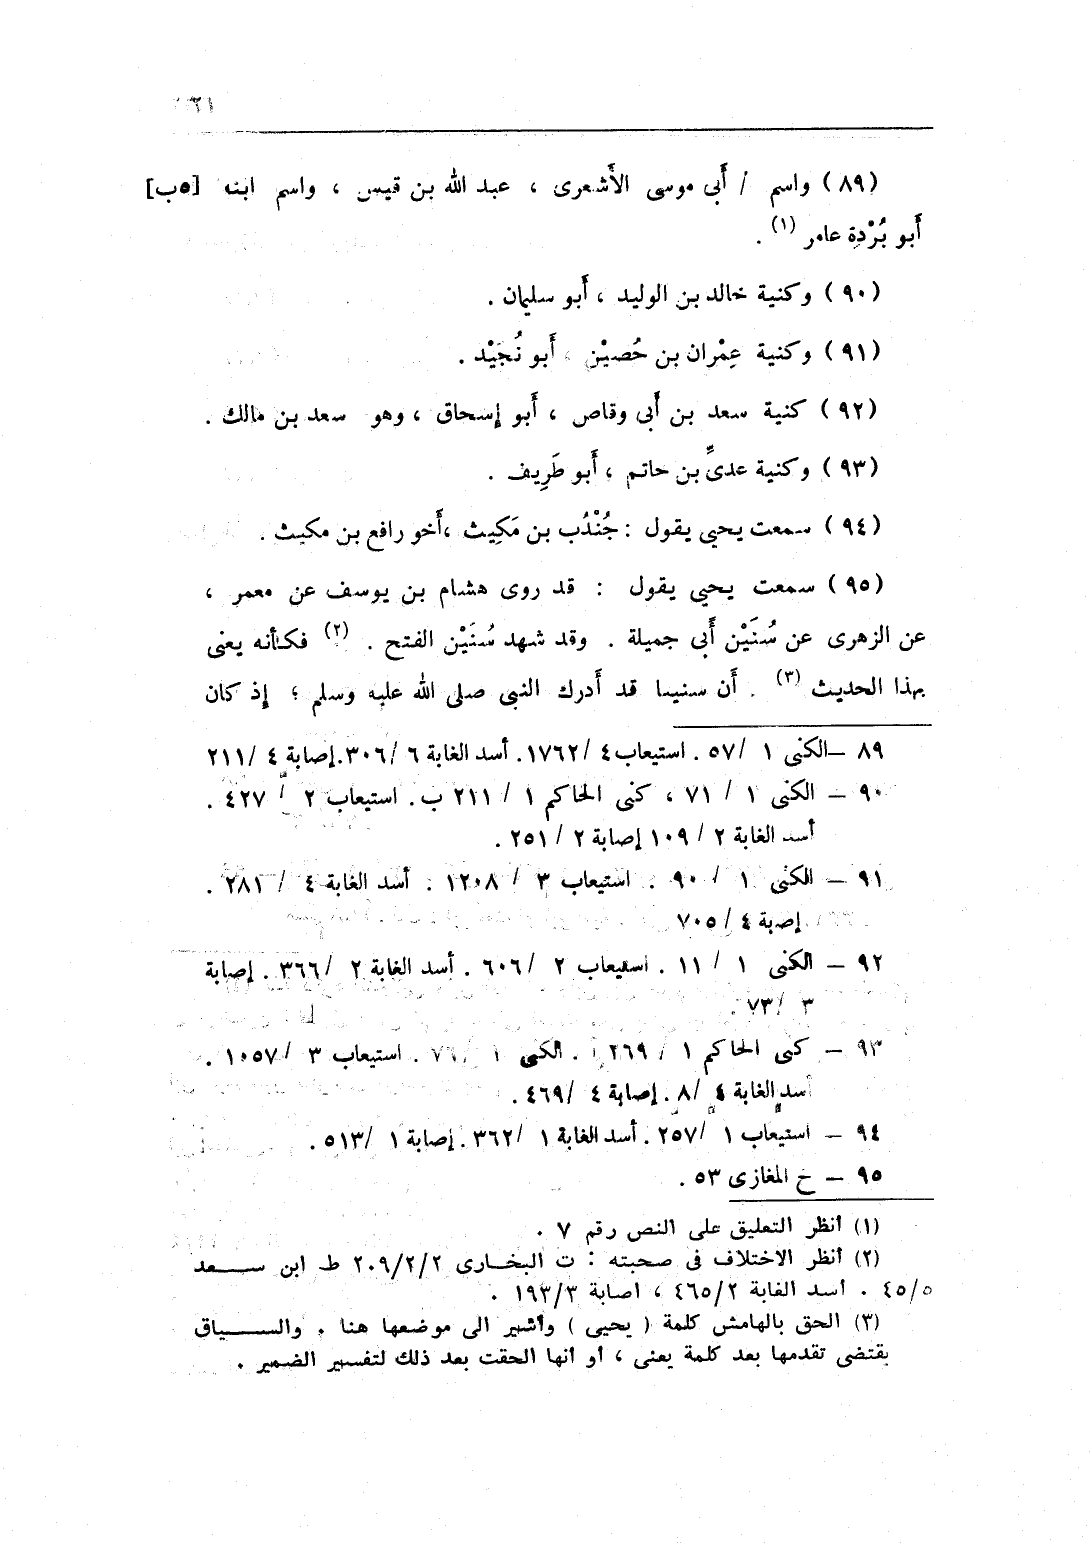 ٢١
(٨٩) واسم / أَبى موسى الأَشعرى ، عبد الله بن قيس ، واسم ابنه [٥ب]
أَبو بُرْدِة عامر (١) .
(٩٠) وكنية خالد بن الوليد ، أَبو سليمان .
(٩١) وكنية عِمْران بن حُصيْن ، أَبو نُجَيْد .
(٩٢) كنية سعد بن أَبى وقاص ، أَبو إسحاق ، وهو سعد بن مالك .
(٩٣) وكنية عدىِّ بن حاتم ، أَبو طَرِيف .
(٩٤) سمعت يحيى يقول : جُنْدُب بن مَكِيث ، أَخو رافع بن مكيث .
(٩٥) سمعت يحيى يقول : قد روى هشام بن يوسف عن معمر ،
عن الزهرى عن سُنَيْن أَبى جميلة . وقد شهد سُنَيْن الفتح . (٢) فكأنه يعنى
بهذا الحديث (٣) . أَن سنينا قد أَدرك النبى صلى الله عليه وسلم ؛ إِذ كان
٨٩ – الكنى ١ /٥٧ . استيعاب ٤ /١٧٦٢. أسد الغابة ٦ /٣٠٦. إصابة ٤ /٢١١
٩٠ – الكنى ١ / ٧١ ، كنى الحاكم ١ / ٢١١ ب . استيعاب ٢ / ٤٢٧ .
أسد الغابة ٢ / ١٠٩ إصابة ٢ / ٢٥١ .
٩١ – الكنى ١ / ٩٠ . استيعاب ٣ / ١٢٠٨ . أسد الغابة ٤ / ٢٨١ .
إصبة ٤ / ٧٠٥
٩٢ – الكنى ١ / ١١ . استيعاب ٢ / ٦٠٦ . أسد الغابة ٢ / ٣٦٦ . إصابة
٣ / ٧٣ .
٩٣ – كنى الحاكم ١ / ٢٦٩ أ . الكنى ١ / ٧٦ . استيعاب ٣ / ١٠٥٧ .
أسد الغابة ٤ / ٨ . إصابة ٤ / ٤٦٩ .
٩٤ – استيعاب ١ / ٢٥٧ . أسد الغابة ١ / ٣٦٢ . إصابة ١ / ٥١٣ .
٩٥ – خ المغازى ٥٣ .
(١) أنظر التعليق على النص رقم ٧ .
(٢) أنظر الاختلاف فى صحبته : ت البخـارى ٢٠٩/٢/٢ ط ابن ســعد
٤٥/٥ . أسد الغابة ٤٦٥/٢ ، اصابة ١٩٣/٣ .
(٣) الحق بالهامش كلمة ( يحيى ) وأشير الى موضعها هنا . والســياق
يقتضى تقدمها بعد كلمة يعنى ، أو أنها الحقت بعد ذلك لتفسير الضمير .